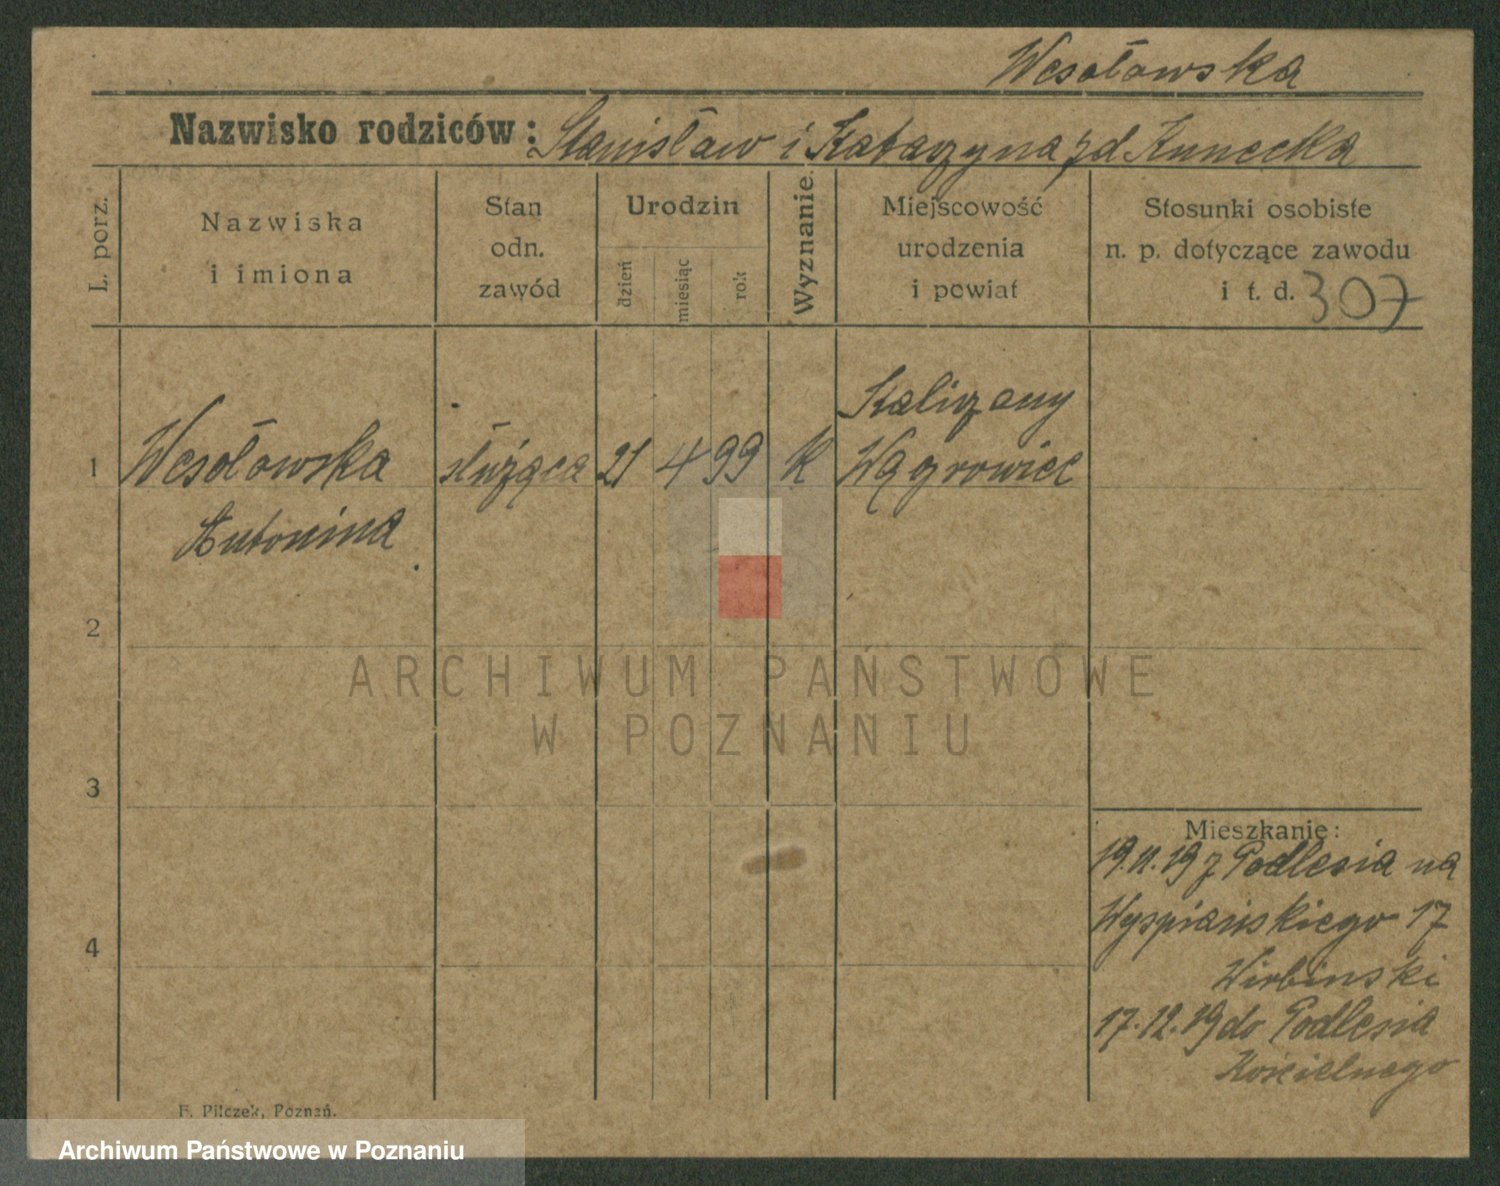 Wesołowska
Nazwisko rodziców: Stanisław i Katarzyna zd Kunecka
L. porz.
Nazwiska
i imiona
Stan
odn.
zawód
Urodzin
dzień
miesiąc
rok
Wyznanie.
Miejscowość
urodzenia
i powiat
Stosunki osobiste
n. p. dotyczące zawodu
i t. d. 307
Kaliszany
1 Wesołowska służąca 21 4 99 K Wągrowiec
Antonina
2
3
4
Mieszkanie:
19.11.19 z Podlesia na
Wyspiańskiego 17
17.12.19 do Podlesia
Kościelnego
F. Pilczek, Poznań.
ARCHIWUM PAŃSTWOWE
W POZNANIU
Archiwum Państwowe w Poznaniu